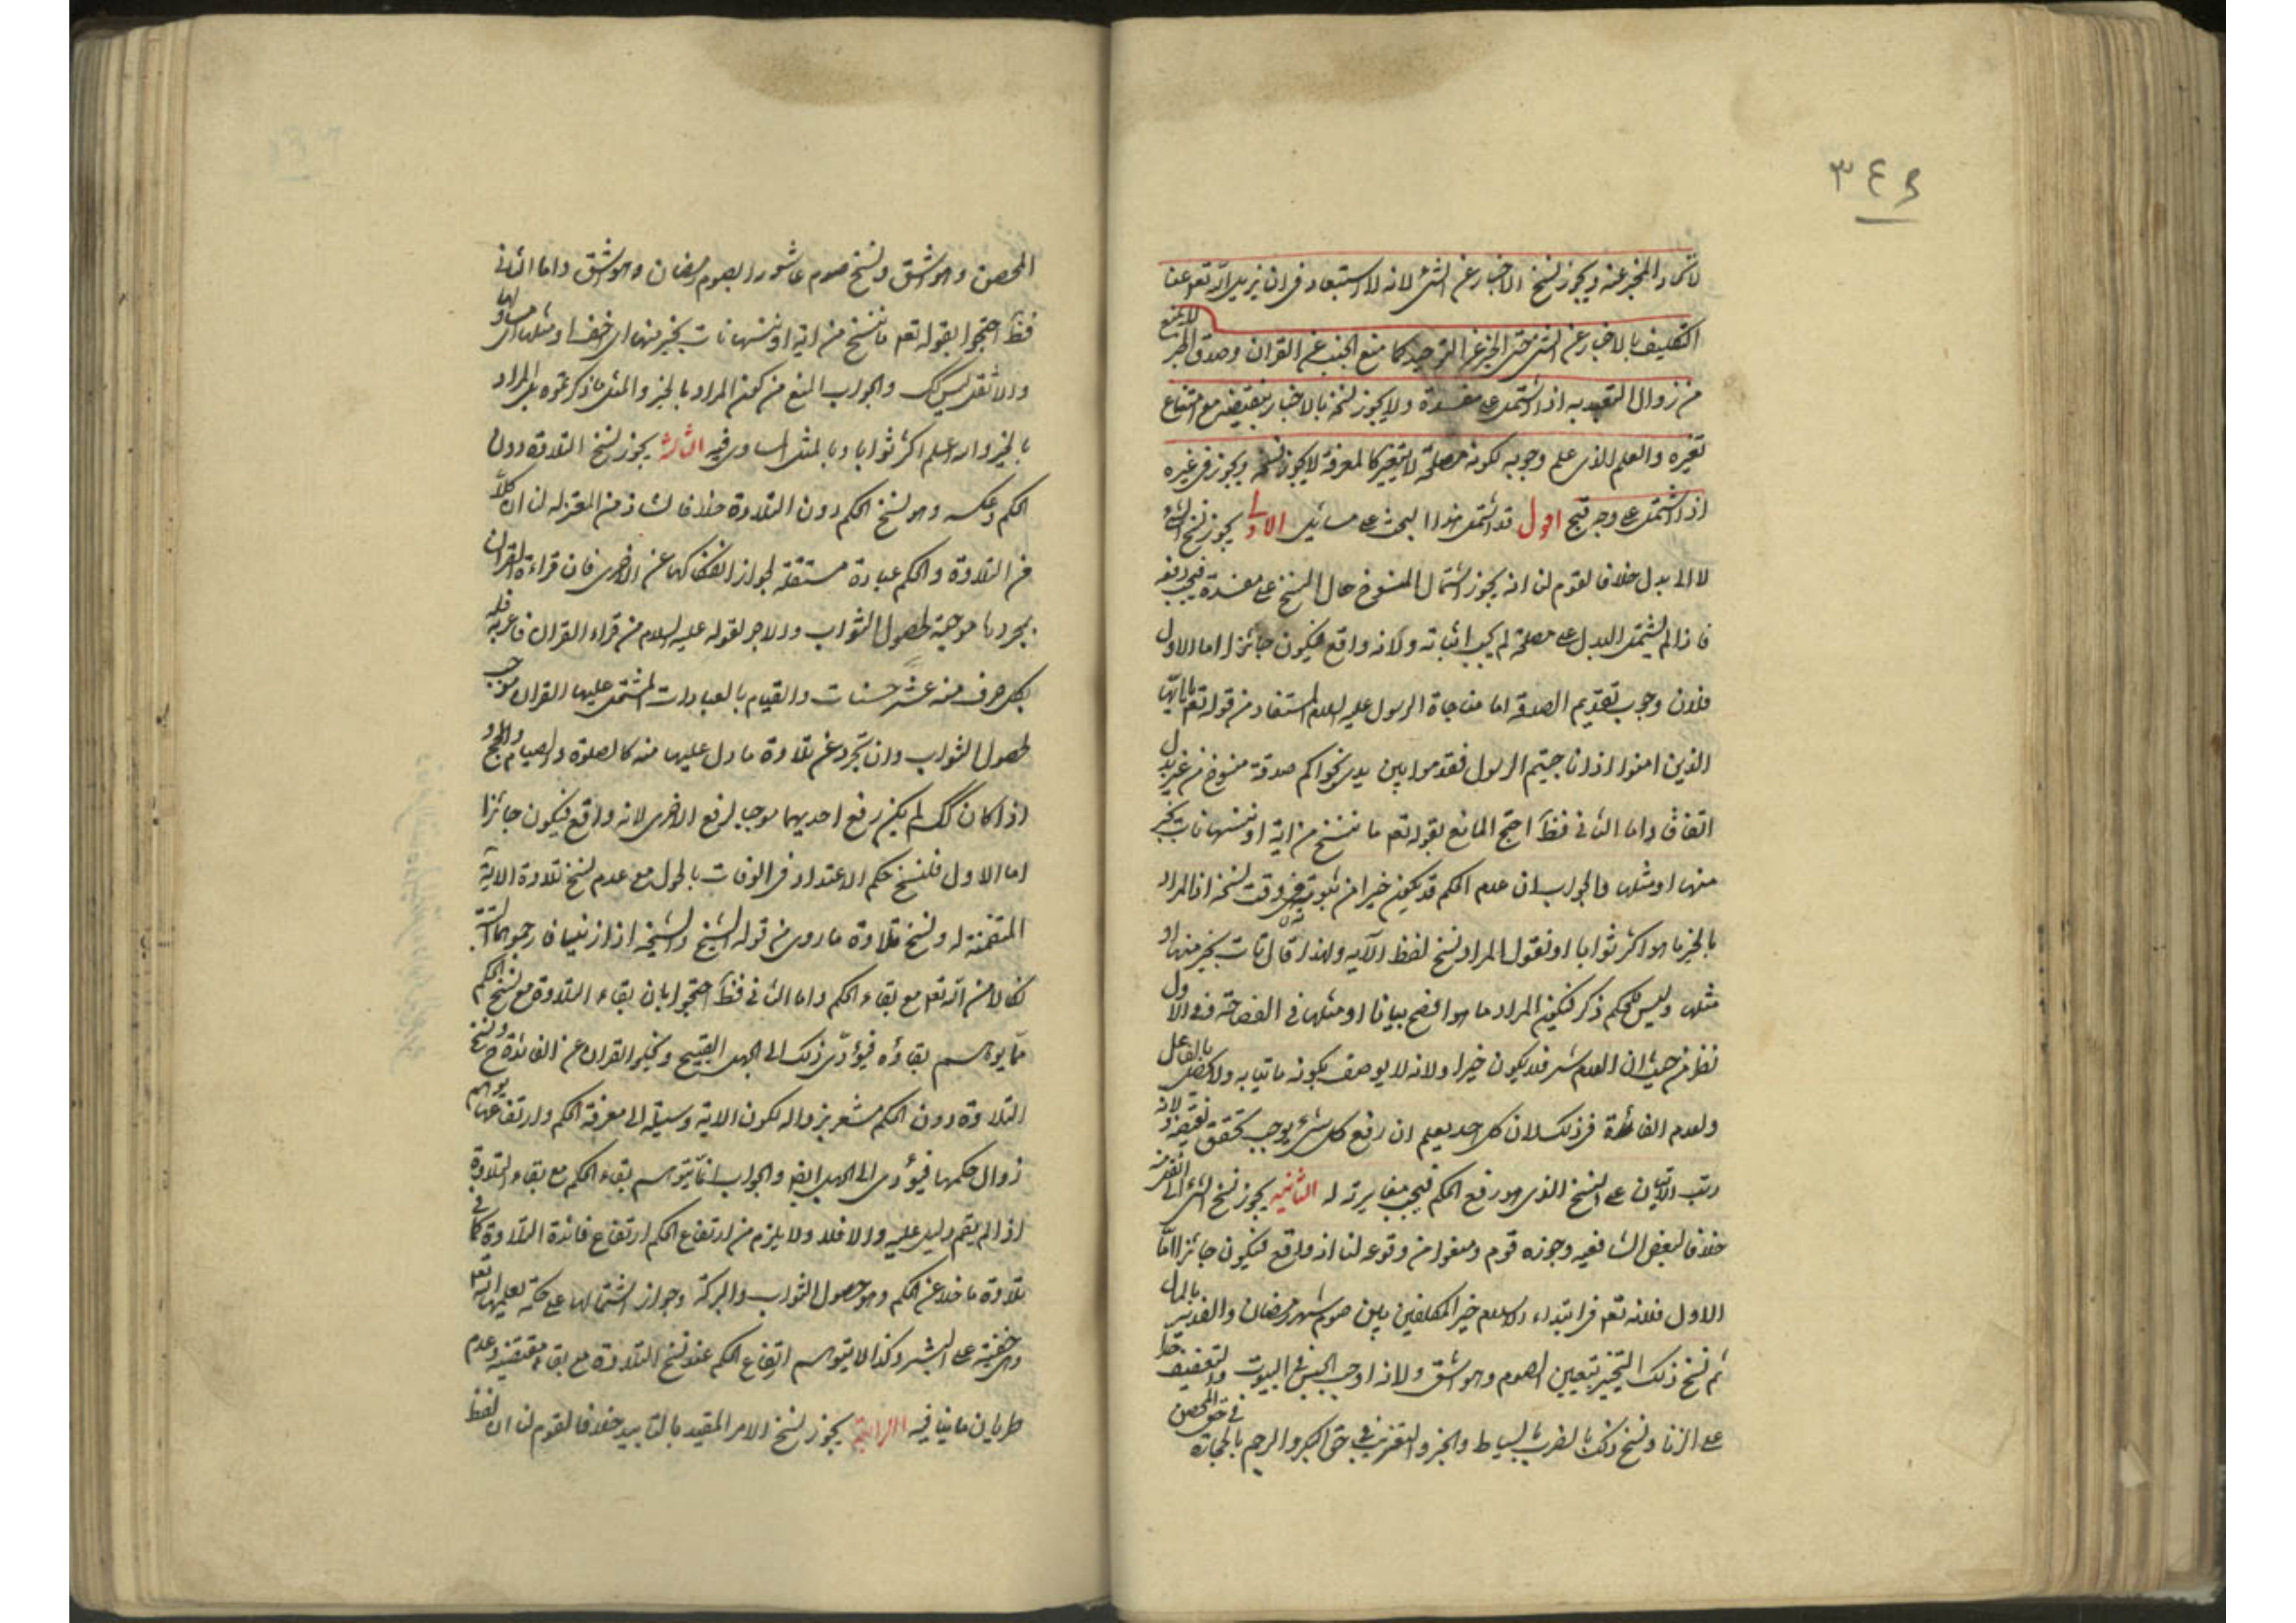 ٣٤٩
لاتحاد المخبر عنه ويجوز نسخ الاخبار عن الشئ لانه لا استبعاد فى ان يزيل الله تعم عنا
التكليف بالاخبار عن الشئ حتى الخبر عن التوحيد كما منع الجنب عن القران وصدق الخبر لا يمنع
من زوال التعبد به اذا اشتمل على مفسدة ولا يجوز نسخه بالاخبار بنقيضه مع امتناع
تغيره والعلم الذى علم وجوبه لكونه مصلحة لا يتغير كالمعرفة لا يجوز نسخه ويجوز فى غيره
اذا اشتمل على وجه قبح اقول قد اشتمل هذا البحث على مسائل الاولى يجوز نسخ الشئ
لا الى بدل خلافا لقوم لنا انه يجوز اشتمال المنسوخ حال النسخ على مفسدة فيجب رفعه
فاذا لم يشتمل البدل على مصلحة لم يجب اثباته ولانه واقع فيكون جائزا اما الاول
فلان وجوب تقديم الصدقة امام مناجاة الرسول عليه السلام المستفاد من قوله تعم يا ايها
الذين امنوا اذا ناجيتم الرسول فقدموا بين يدى نجواكم صدقة منسوخ من غير بدل
اتفاقا واما الثانى فظ احتج المانع بقوله تعم ما ننسخ من اية او ننسها نات بخير
منها او مثلها والجواب ان عدم الحكم قد يكون خيرا من ثبوته فى وقت نسخه اذ المراد
بالخير ما هو اكثر ثوابا او نقول المراد نسخ لفظ الآية ولهذا قال نات بخير منها او
مثلها وليس للحكم ذكر فيكون المراد ما هو افصح بيانا او مثلها فى الفصاحة وفى الاول
نظر من حيث ان العدم شر فلا يكون خيرا ولانه لا يوصف بكونه ماتيا به ولا يحصل بالفاعل
ولعدم الفائدة فى ذلك لان كل احد يعلم ان رفع كل شئ يوجب تحقق نقيضه ولانه
رتب الاتيان على النسخ الذى هو رفع الحكم فيجب مغايرته له الثانية يجوز نسخ الشئ الى اثقل منه
خلافا لبعض الشافعية وجوزه قوم ومنعوا من وقوعه لنا انه واقع فيكون جائزا اما
الاول فلانه تعم فى ابتداء الاسلام خير المكلفين بين صوم شهر رمضان والفدية بالمال
ثم نسخ ذلك التخيير بتعيين الصوم وهو اشق ولانه اوجب الحبس فى البيوت والتعنيف حدا
على الزنا ونسخ ذلك بالضرب بالسياط والجز والتغريب فى حق البكر والرجم بالحجارة فى حق المحصن
المحصن وهو اشق ونسخ صوم عاشورا بصوم رمضان وهو اشق واما الثانى
فظ احتجوا بقوله تعم ما ننسخ من اية او ننسها نات بخير منها اى اخف او مثلها اى مساو لها
والاثقل ليس كك والجواب المنع من كون المراد بالخير والمثل ما ذكرتموه بل المراد
بالخير والله اعلم اكثر ثوابا وبالمثل المساوى فيه الثالثة يجوز نسخ التلاوة دون
الحكم وعكسه وهو نسخ الحكم دون التلاوة خلافا لشاذ من المعتزلة لنا ان كلا
من التلاوة والحكم عبادة مستقلة لجواز انفكاكها عن الاخرى فان قراءة القران
بمجردها موجبة لحصول الثواب والاجر لقوله عليه السلام من قراء القران فاعربه فله
بكل حرف منه عشر حسنات والقيام بالعبادات المشتمل عليها القران موجب
لحصول الثواب وان تجرد عن تلاوة ما دل عليها منه كالصلوة والصيام والحج
اذا كان كك لم يكن رفع احديهما موجبا لرفع الاخرى لانه واقع فيكون جائزا
اما الاول فلنسخ حكم الاعتداد فى الوفات بالحول مع عدم نسخ تلاوة الآية
المتضمنة له ونسخ تلاوة ما روى من قوله الشيخ والشيخة اذا زنيا فارجموهما البتة
نكالا من الله تعم مع بقاء الحكم واما الثانى فظ احتجوا بان بقاء التلاوة مع نسخ الحكم
مما يوهم بقاؤه فيؤدى ذلك الى الجهل القبيح ويخلو القران عن الفائدة ح ونسخ
التلاوة دون الحكم مشعر بزواله لكون الاية وسيلة الى معرفة الحكم وارتفاعها يوهم
زوال حكمها فيؤدى الى الجهل ايضا والجواب انما يتوهم بقاء الحكم مع بقاء التلاوة
اذا لم يقم دليل عليه والا فلا ولا يلزم من ارتفاع الحكم ارتفاع فائدة التلاوة كما فى
تلاوة ما خلا عن الحكم وهو حصول الثواب والبركة وجواز اشتمالها على حكمة يعلمها الله تعم
وهى خفية على البشر وكذا لا يتوهم ارتفاع الحكم عند نسخ التلاوة مع بقاء مقتضيه وعدم
طريان ما ينافيه الرابعة يجوز نسخ الامر المقيد بالتابيد خلافا لقوم لنا ان لفظ